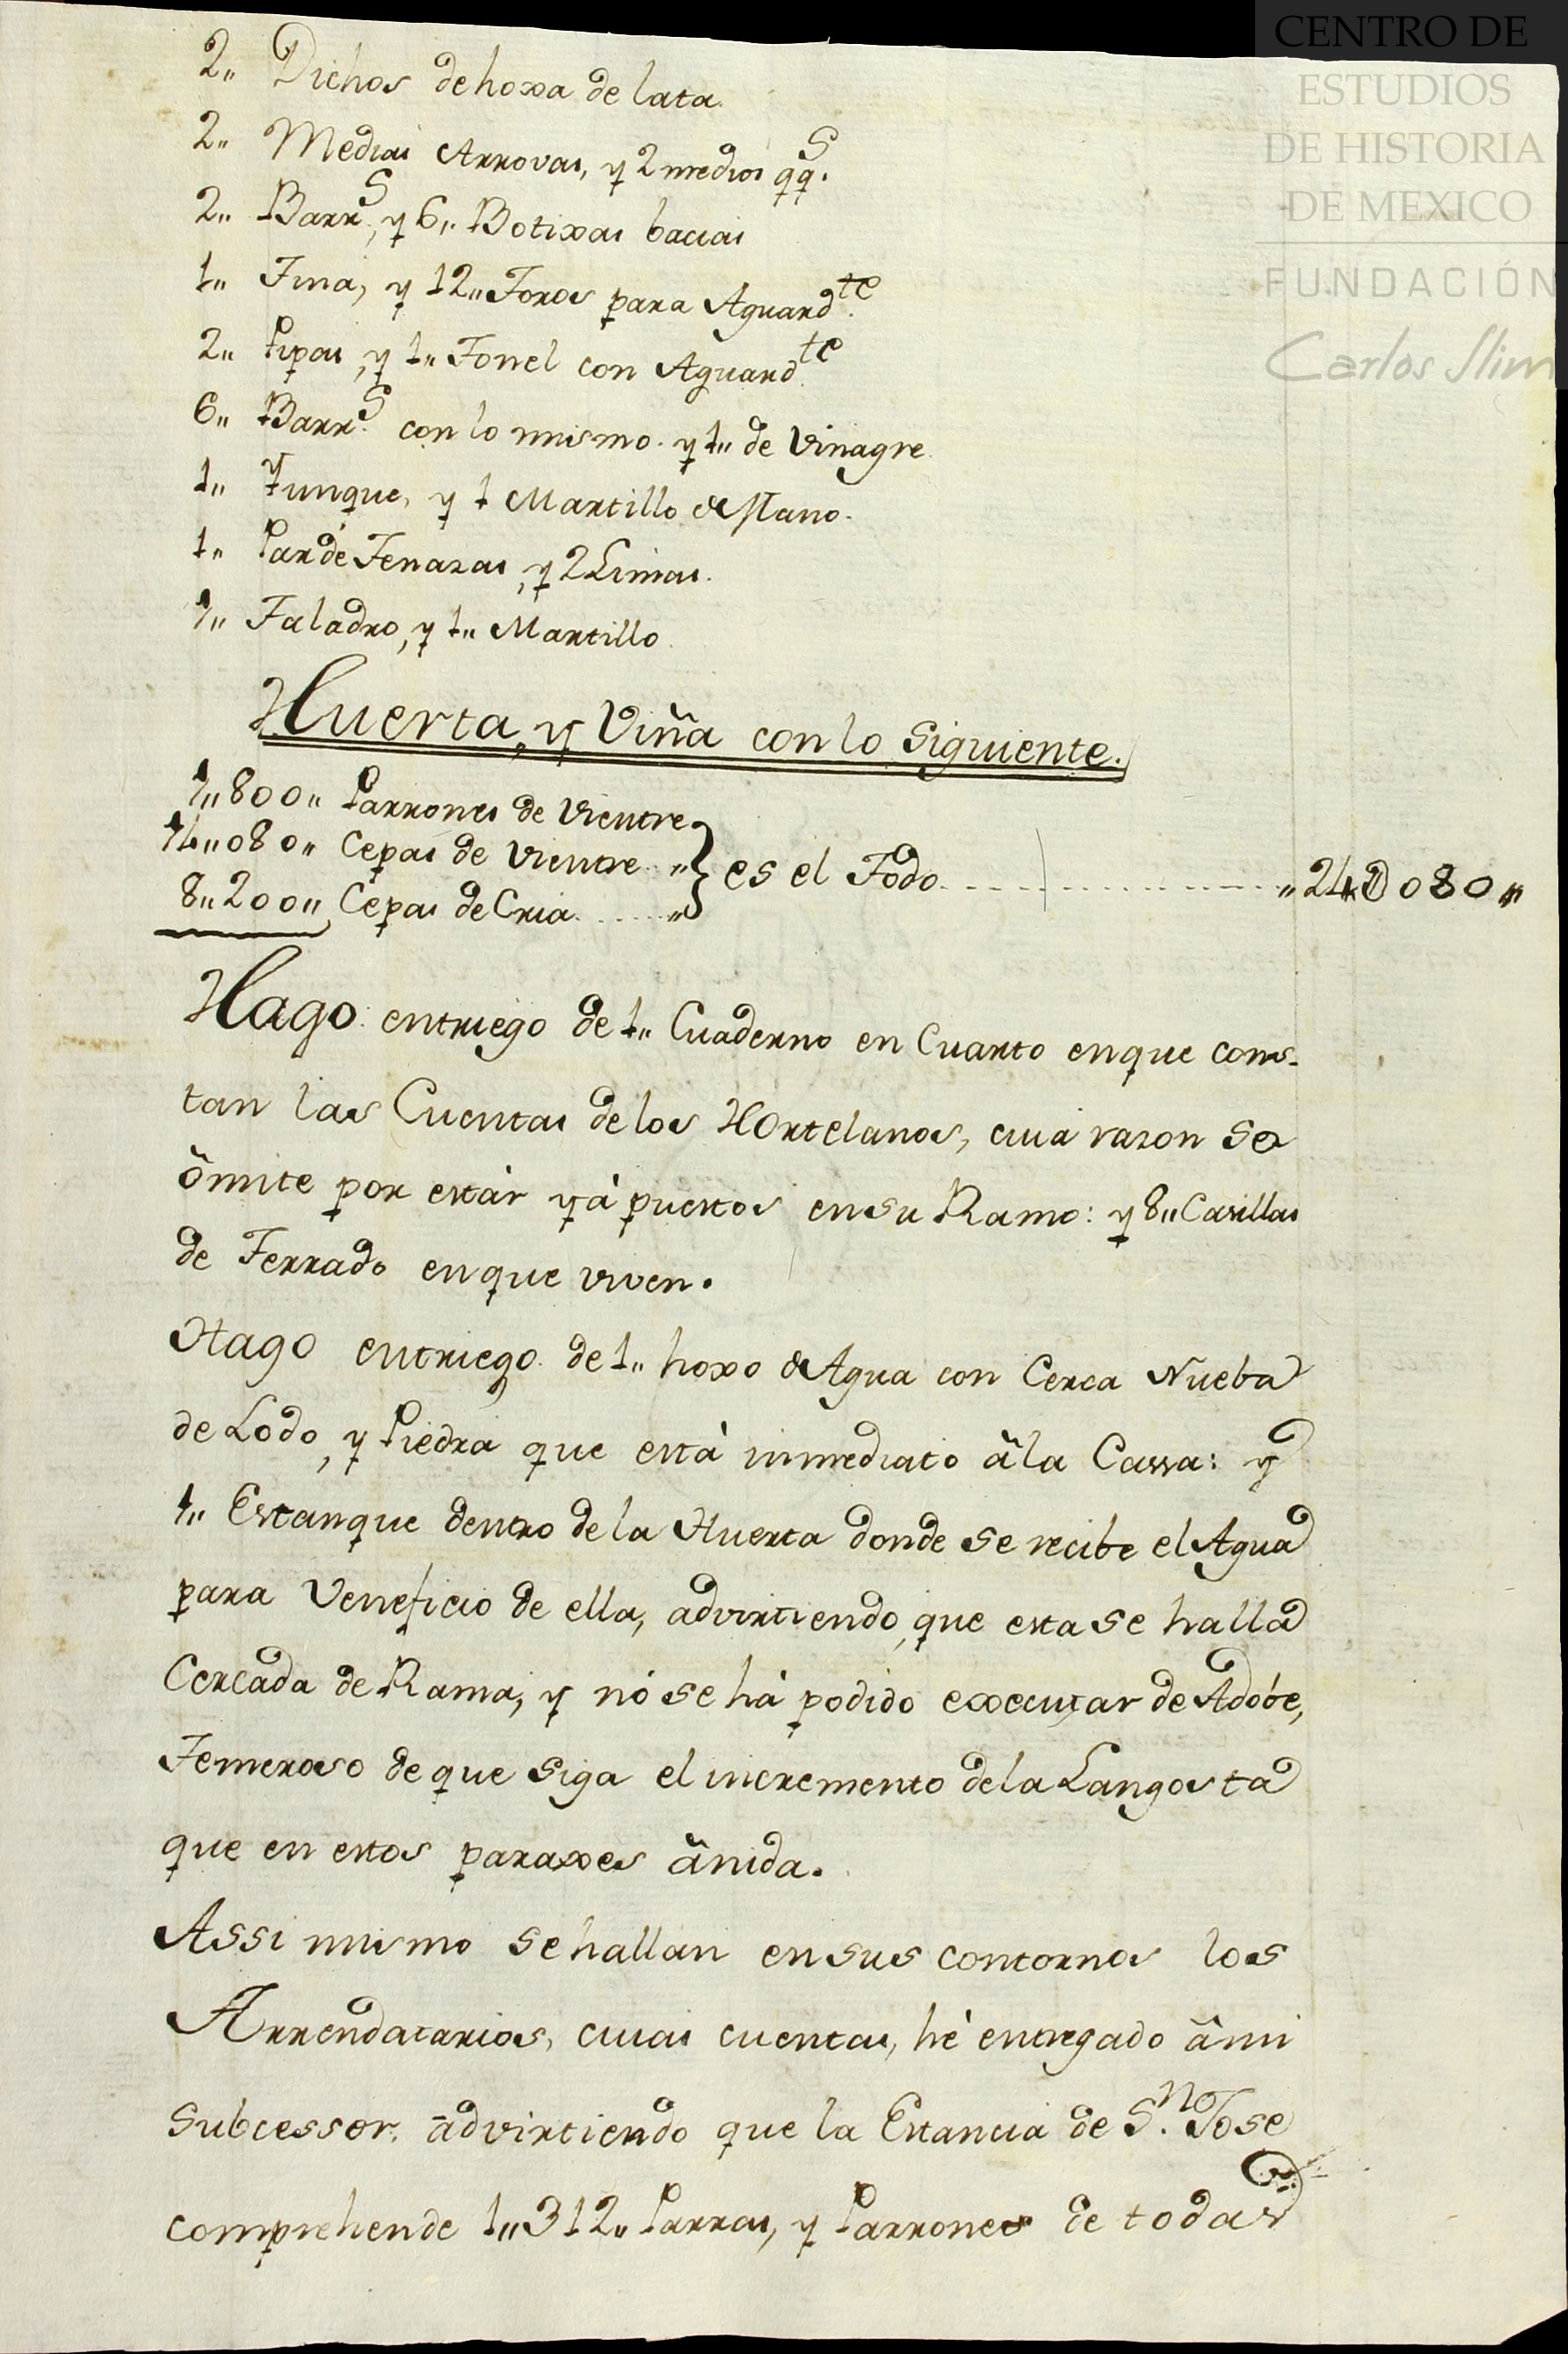 CENTRO DE
ESTUDIOS
DE HISTORIA
DE MEXICO
FUNDACIÓN
Carlos Slim
2,, Dichos de hoxa de lata.
2,, Medias Arrovas, y 2 medios qq.s
2,, Barr.s, y 6,, Botixas bacias
1,, Tina, y 12,, Toros para Aguard.te
2,, Pipas, y 1,, Tonel con Aguard.te
6,, Barr.s con lo mismo. y 1,, de Vinagre.
1,, Yunque, y 1 Martillo de Mano.
1,, Par de Tenazas, y 2 Limas.
1,, Taladro, y 1,, Martillo.
Huerta, y Viña con lo Siguiente.
1,,800,, Parrones de Vientre
14,,080,, Cepas de Vientre ,, } es el Todo ,,24@080,,
8,,200,, Cepas de Cria. ,,
Hago entriego de 1,, Cuaderno en Cuarto en que cons-
tan las Cuentas de los Hortelanos, cuia razon se
ômite por estàr yà puestos en su Ramo: y 8,, Casillas
de Terrado en que viven.
Hago entriego de 1,, hoxo de Agua con Cerca Nueba
de Lodo, y Piedra que està inmediato â la Cassa: y
1,, Estanque dentro de la Huerta donde se recibe el Agua
para Veneficio de ella, advirtiendo, que esta se halla
Cercada de Rama, y nó se hà podido executar de Adóbe,
Temeroso de que siga el incremento de la Langosta
que en estos paraxes ânida.
Assi mismo se hallan en sus contornos los
Arrendatarios, cuias cuentas, hè entregado â mi
Subcessor, âdvirtiendo que la Estancia de S.no Jose
comprehende 1,,312,, Parras, y Parrones de todas